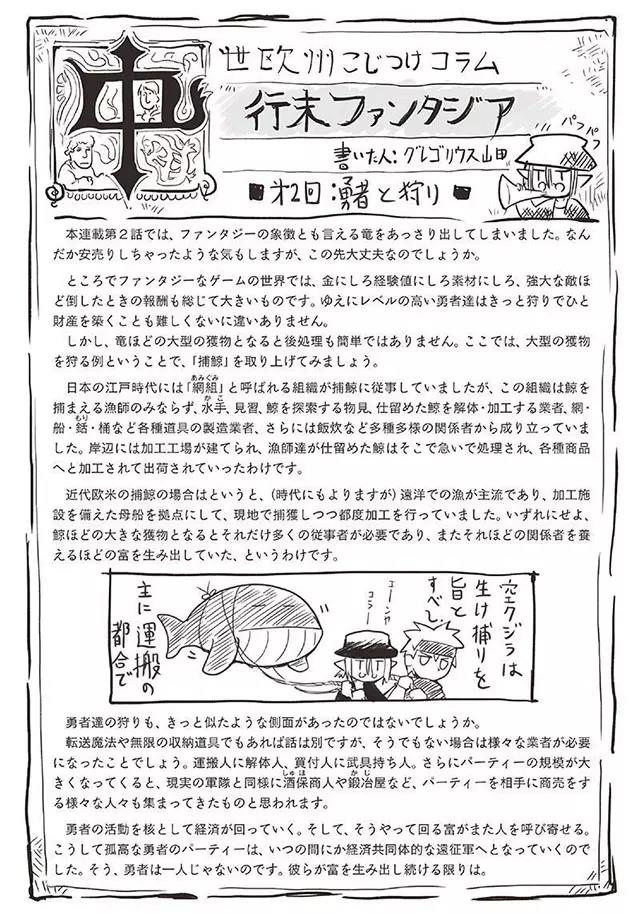 中世欧州こじつけコラム
行末ファンタジア
書いた人:グレゴリウス山田
パフパフ
■第2回:勇者と狩り■
本連載第2話では、ファンタジーの象徴とも言える竜をあっさり出してしまいました。なん
だか安売りしちゃったような気もしますが、この先大丈夫なのでしょうか。
ところでファンタジーなゲームの世界では、金にしろ経験値にしろ素材にしろ、強大な敵ほ
ど倒したときの報酬も総じて大きいものです。ゆえにレベルの高い勇者達はきっと狩りでひと
財産を築くことも難しくないに違いありません。
しかし、竜ほどの大型の獲物となると後処理も簡単ではありません。ここでは、大型の獲物
を狩る例ということで、「捕鯨」を取り上げてみましょう。
日本の江戸時代には「網組」と呼ばれる組織が捕鯨に従事していましたが、この組織は鯨を
捕まえる漁師のみならず、水手、見習、鯨を探索する物見、仕留めた鯨を解体・加工する業者、網・
船・銛・桶など各種道具の製造業者、さらには飯炊など多種多様の関係者から成り立っていま
した。岸辺には加工工場が建てられ、漁師達が仕留めた鯨はそこで急いで処理され、各種商品
へと加工されて出荷されていったわけです。
近代欧米の捕鯨の場合はというと、(時代にもよりますが)遠洋での漁が主流であり、加工施
設を備えた母船を拠点にして、現地で捕獲しつつ都度加工を行っていました。いずれにせよ、
鯨ほどの大きな獲物となるとそれだけ多くの従事者が必要であり、またそれほどの関係者を養
えるほどの富を生み出していた、というわけです。
空クジラは
生け捕りを
旨と
すべし
エーンヤ
コラー
主に運搬の
都合で
勇者達の狩りも、きっと似たような側面があったのではないでしょうか。
転送魔法や無限の収納道具でもあれば話は別ですが、そうでもない場合は様々な業者が必要
になったことでしょう。運搬人に解体人、買付人に武具持ち人。さらにパーティーの規模が大
きくなってくると、現実の軍隊と同様に酒保商人や鍛冶屋など、パーティーを相手に商売をす
る様々な人々も集まってきたものと思われます。
勇者の活動を核として経済が回っていく。そして、そうやって回る富がまた人を呼び寄せる。
こうして孤高な勇者のパーティーは、いつの間にか経済共同体的な遠征軍へとなっていくので
した。そう、勇者は一人じゃないのです。彼らが富を生み出し続ける限りは。